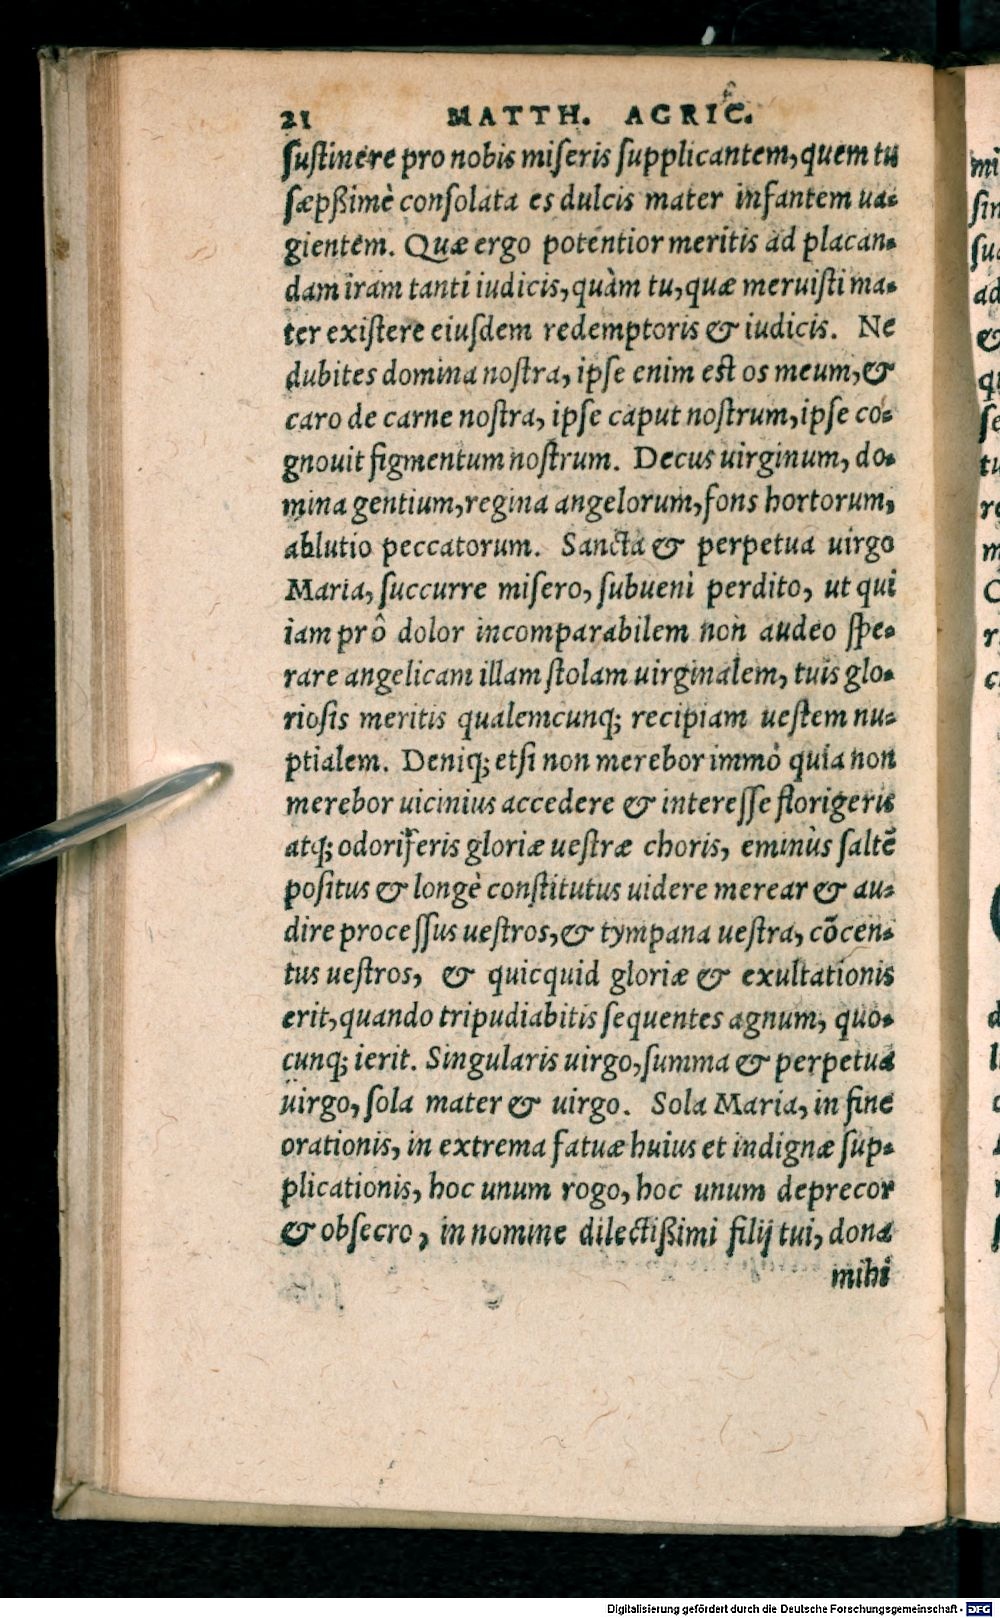 21 MATTH. AGRIC.
ſuſtinere pro nobis miſeris ſupplicantem, quem tu
ſæpßimè conſolata es dulcis mater infantem ua-
gientem. Quæ ergo potentior meritis ad placan-
dam iram tanti iudicis, quàm tu, quæ meruiſti ma-
ter exiſtere eiuſdem redemptoris & iudicis. Ne
dubites domina noſtra, ipſe enim est os meum, &
caro de carne noſtra, ipſe caput noſtrum, ipſe co-
gnouit figmentum noſtrum. Decus uirginum, do-
mina gentium, regina angelorum, fons hortorum,
ablutio peccatorum. Sancta & perpetua uirgo
Maria, ſuccurre miſero, ſubueni perdito, ut qui
iam prô dolor incomparabilem non audeo ſpe-
rare angelicam illam ſtolam uirginalem, tuis glo-
rioſis meritis qualemcunq; recipiam ueſtem nu-
ptialem. Deniq; etſi non merebor immò quia non
merebor uicinius accedere & intereſſe florigeris
atq; odoriferis gloriæ ueſtræ choris, eminùs ſaltē
poſitus & longè conſtitutus uidere merear & au-
dire proceſſus ueſtros, & tympana ueſtra, cōcen-
tus ueſtros, & quicquid gloriæ & exultationis
erit, quando tripudiabitis ſequentes agnum, quo-
cunq; ierit. Singularis uirgo, ſumma & perpetua
uirgo, ſola mater & uirgo. Sola Maria, in fine
orationis, in extrema fatuæ huius et indignæ ſup-
plicationis, hoc unum rogo, hoc unum deprecor
& obſecro, in nomine dilectißimi filij tui, dona
mihi
Digitalisierung gefördert durch die Deutsche Forschungsgemeinschaft - DFG